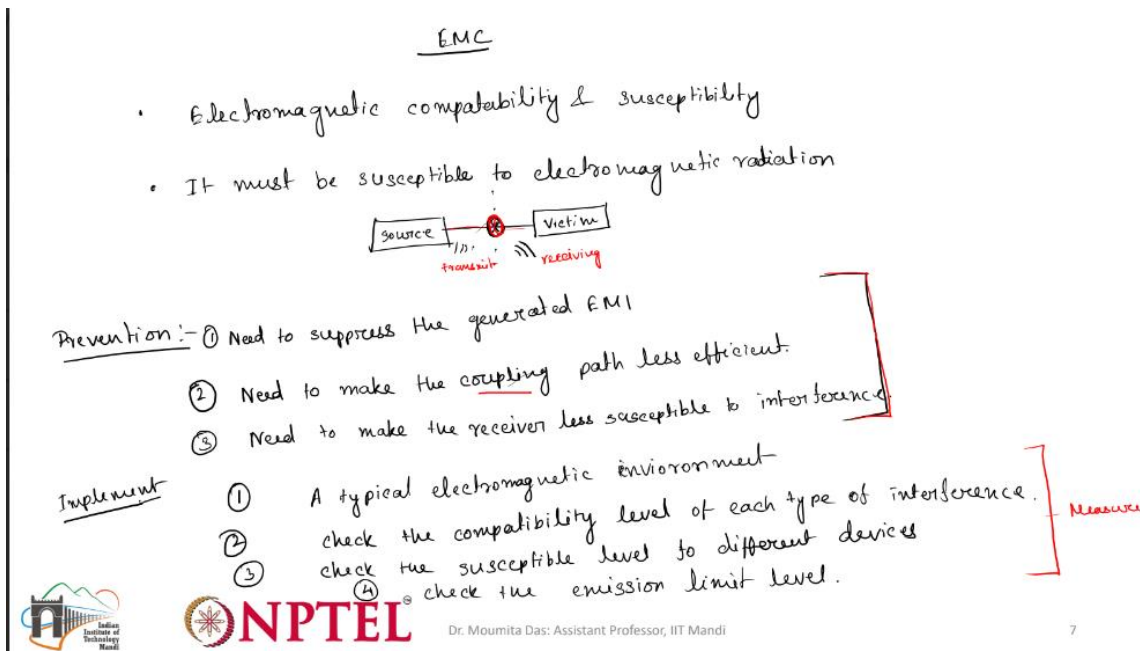 EMC
· Electromagnetic compatability & susceptibility
· It must be susceptible to electromagnetic radiation
source victim
transmit receiving
Prevention:- ① Need to suppress the generated EMI
② Need to make the coupling path less efficient.
③ Need to make the receiver less susceptible to interference.
Implement ① A typical electromagnetic envioronment
② check the compatibility level of each type of interference.
Measure
③ check the susceptible level to different devices
④ check the emission limit level.
Indian
Institute of
Technology
Mandi
NPTEL
Dr. Moumita Das: Assistant Professor, IIT Mandi
7